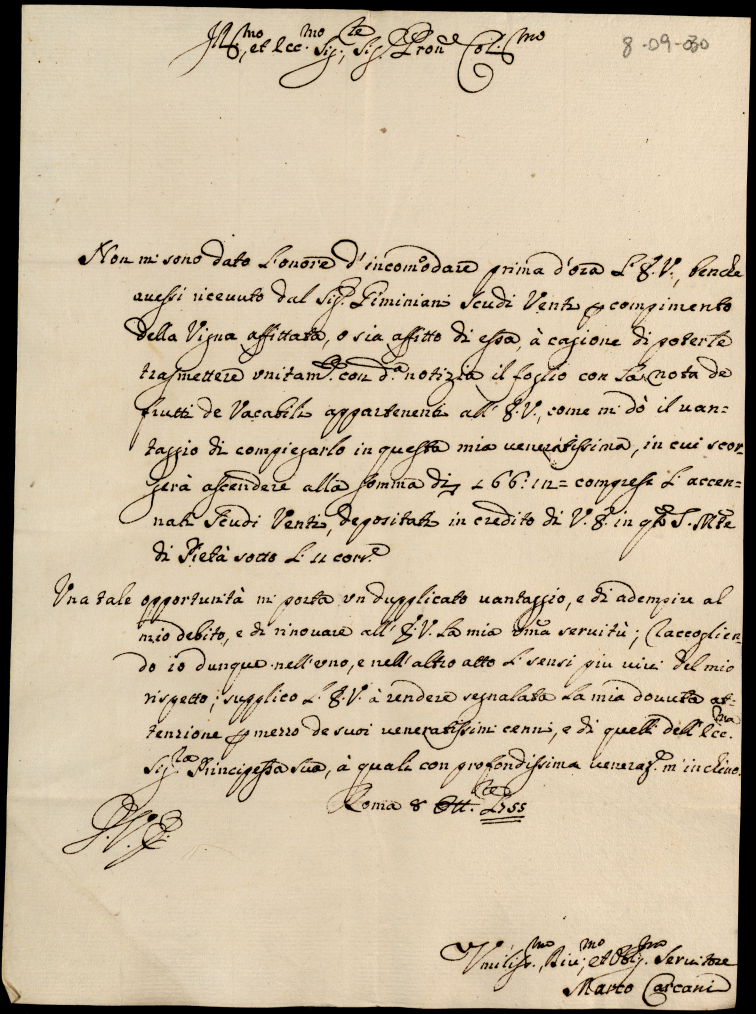 Ill.mo, et Ecc.mo Sig.re, Sig.r Pron.e Col.mo
8-09-030
Non mi sono dato l'onore d'incomodare prima d'ora L'E.V., benche
avessi ricevuto dal Sig.r Giminiani Scudi Venti p compimento
della Vigna affittata, o sia affitto di essa, à cagione di poterle
trasmettere unitam.te con d.a notizia il foglio con la nota de
frutti de Vacabili appartenenti all'E.V., come mi dò il van=
taggio di compiegarlo in questa mia veneratissima, in cui scor=
gerà ascendere alla somma di 466:12= compresi l'accen=
nati Scudi Venti, depositati in credito di V.E. in q.to S. M.te
di Pietà sotto l'11 corr.e
Una tale opportunità mi porta un dupplicato vantaggio, e di adempire al
mio debito, e di rinovare all'E.V. la mia um.a servitù; Raccoglien=
do io dunque nell'uno, e nell'altro atto l'sensi più vivi del mio
rispetto; supplico L'E.V. à rendere segnalata la mia dovuta at=
tenzione p mezzo de suoi veneratissimi cenni, e di quelli dell'Ecc.ma
Sig.ra Principessa sua, à quali con profondissima veneraz.e m'inclino.
Roma 8 Ott.re 1755
S.V.E.
Umiliss.mo, Div.mo, et Obb.mo Servitore
Marco Carcani